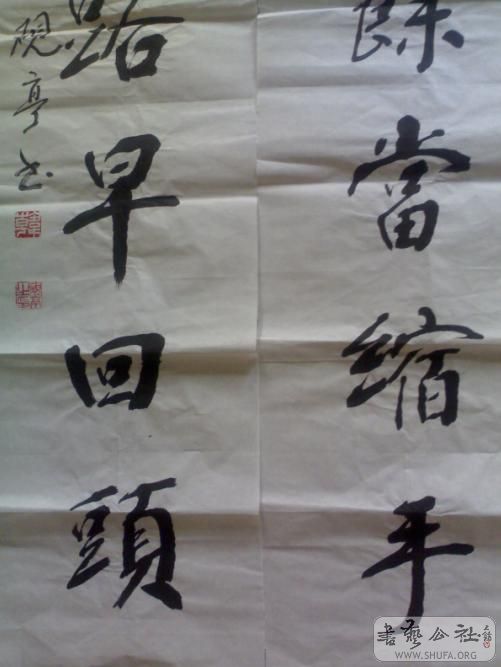 餘當縮手
路早回頭
硯亭书
書藝公社
WWW.SHUFA.ORG